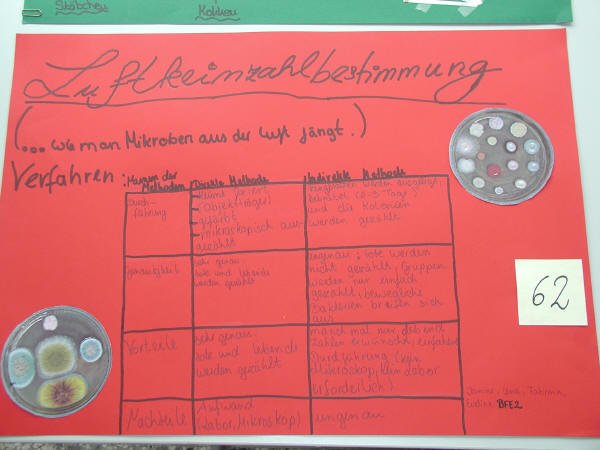 Stäbchen
Kokken
Luftkeimzahlbestimmung
(... wie man Mikroben aus der Luft fängt.)
Verfahren:
Methoden
Direkte Methode
Indirekte Methode
Durch-
führung
Keime fixiert
(Objektträger)
gefärbt
mikroskopisch aus-
gezählt
werden ausgelegt,
bebrütet (2-3 Tage)
und die Kolonien
werden gezählt
Genauigkeit
sehr genau
tote und lebende
werden gezählt
ungenau; tote werden
nicht gezählt, Gruppen
werden nur einfach
gezählt, bewegliche
Bakterien breiten sich
aus
Vorteile
sehr genau,
tote und lebende
werden gezählt
manchmal nur lebend
zahlen erwünscht, einfache
Durchführung (kein
Mikroskop, kein Labor
erforderlich)
Nachteile
Aufwand
(Labor, Mikroskop)
ungenau
62
Janine, Lena, Fatrina,
Eveline BFE2